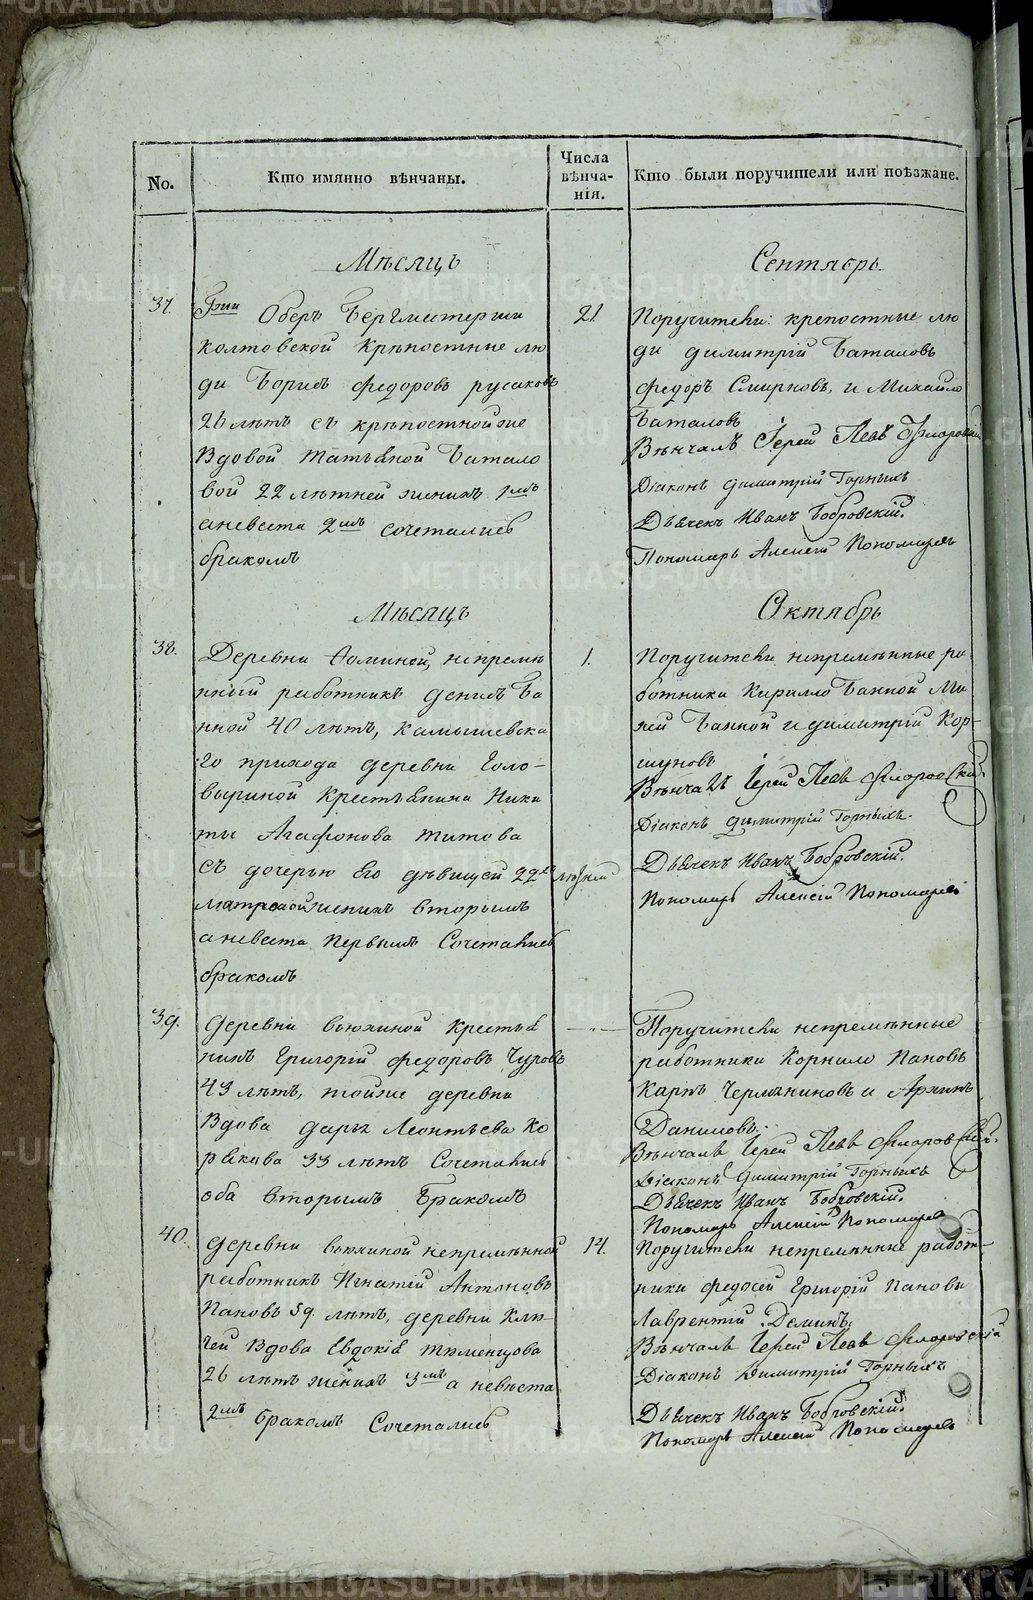 No.
Кто имянно вѣнчаны.
Числа
вѣнча-
нія.
Кто были поручители или поѣзжане.
Мѣсяцъ
Сентябрь
37.
Гжи Оберъ Бергмейстерши
колтовской крѣпостные лю
ди Борисъ федоровъ русаковъ
26 лѣтъ съ крѣпостной же
вдовой татьяной Батало
вой 22 лѣтней женихъ 1мъ
а невеста 2мъ сочетались
бракомъ
21
Поручители: крепостные лю
ди димитрій Баталовъ
федоръ Смирновъ, и Михайло
Баталовъ
Вѣнчалъ Іерей Левъ Флоровскій
Діаконъ димитрій Горныхъ
Дьячекъ Иванъ Бобровскій.
Пономарь Алексій Пономаревъ
Мѣсяцъ
Октябрь
38.
Деревни непремѣ
нный работникъ денисъ Ба
нной 40 лѣтъ, Камышевска
го прихода деревни Голо-
выриной крестьянина Ники
ты Агафонова титова
съ дочерью его дѣвицей 22х лѣтней
матроной женихъ вторымъ
а невеста первымъ Сочетались
бракомъ
1.
Поручители непремѣнные ра
ботники Кирилло Банной Ми
ней Банной и димитрій Кор-
шуновъ
Вѣнчалъ Іерей Левъ Флоровскій.
Діаконъ димитрій Горныхъ.
Дьячекъ Иванъ Бобровскій.
Пономарь Алексій Пономаревъ
39.
деревни вьюхиной крестья
нинъ Григорій федоровъ Чуровъ
43 лѣтъ, тойже деревни
вдова дарья Леонтьева Ко
рякова 33 лѣтъ Сочетались
оба вторымъ Бракомъ
— " —
Поручители непремѣнные
работники Корнило Пановъ
Карпъ Чермяниновъ и Архипъ
Даниловъ.
Вѣнчалъ Іерей Левъ Флоровскій.
Діаконъ Димитрій Горныхъ
Дьячекъ Иванъ Бобровскій.
Пономарь Алексій Пономаревъ
40.
деревни вьюхиной непремѣнной
работникъ Игнатій Антоновъ
Пановъ 59. лѣтъ, деревни Клю-
чей вдова Евдокія тюменцова
26 лѣтъ женихъ 3мъ а невѣста
2мъ бракомъ Сочетались
14.
Поручители непремѣнные работ-
ники федосей Григорій Пановы
Лаврентій Деминъ.
Вѣнчалъ Іерей Левъ Флоровскій
Діаконъ Димитрій Горныхъ
Дьячекъ Иванъ Бобровскій.
Пономарь Алексій Пономаревъ